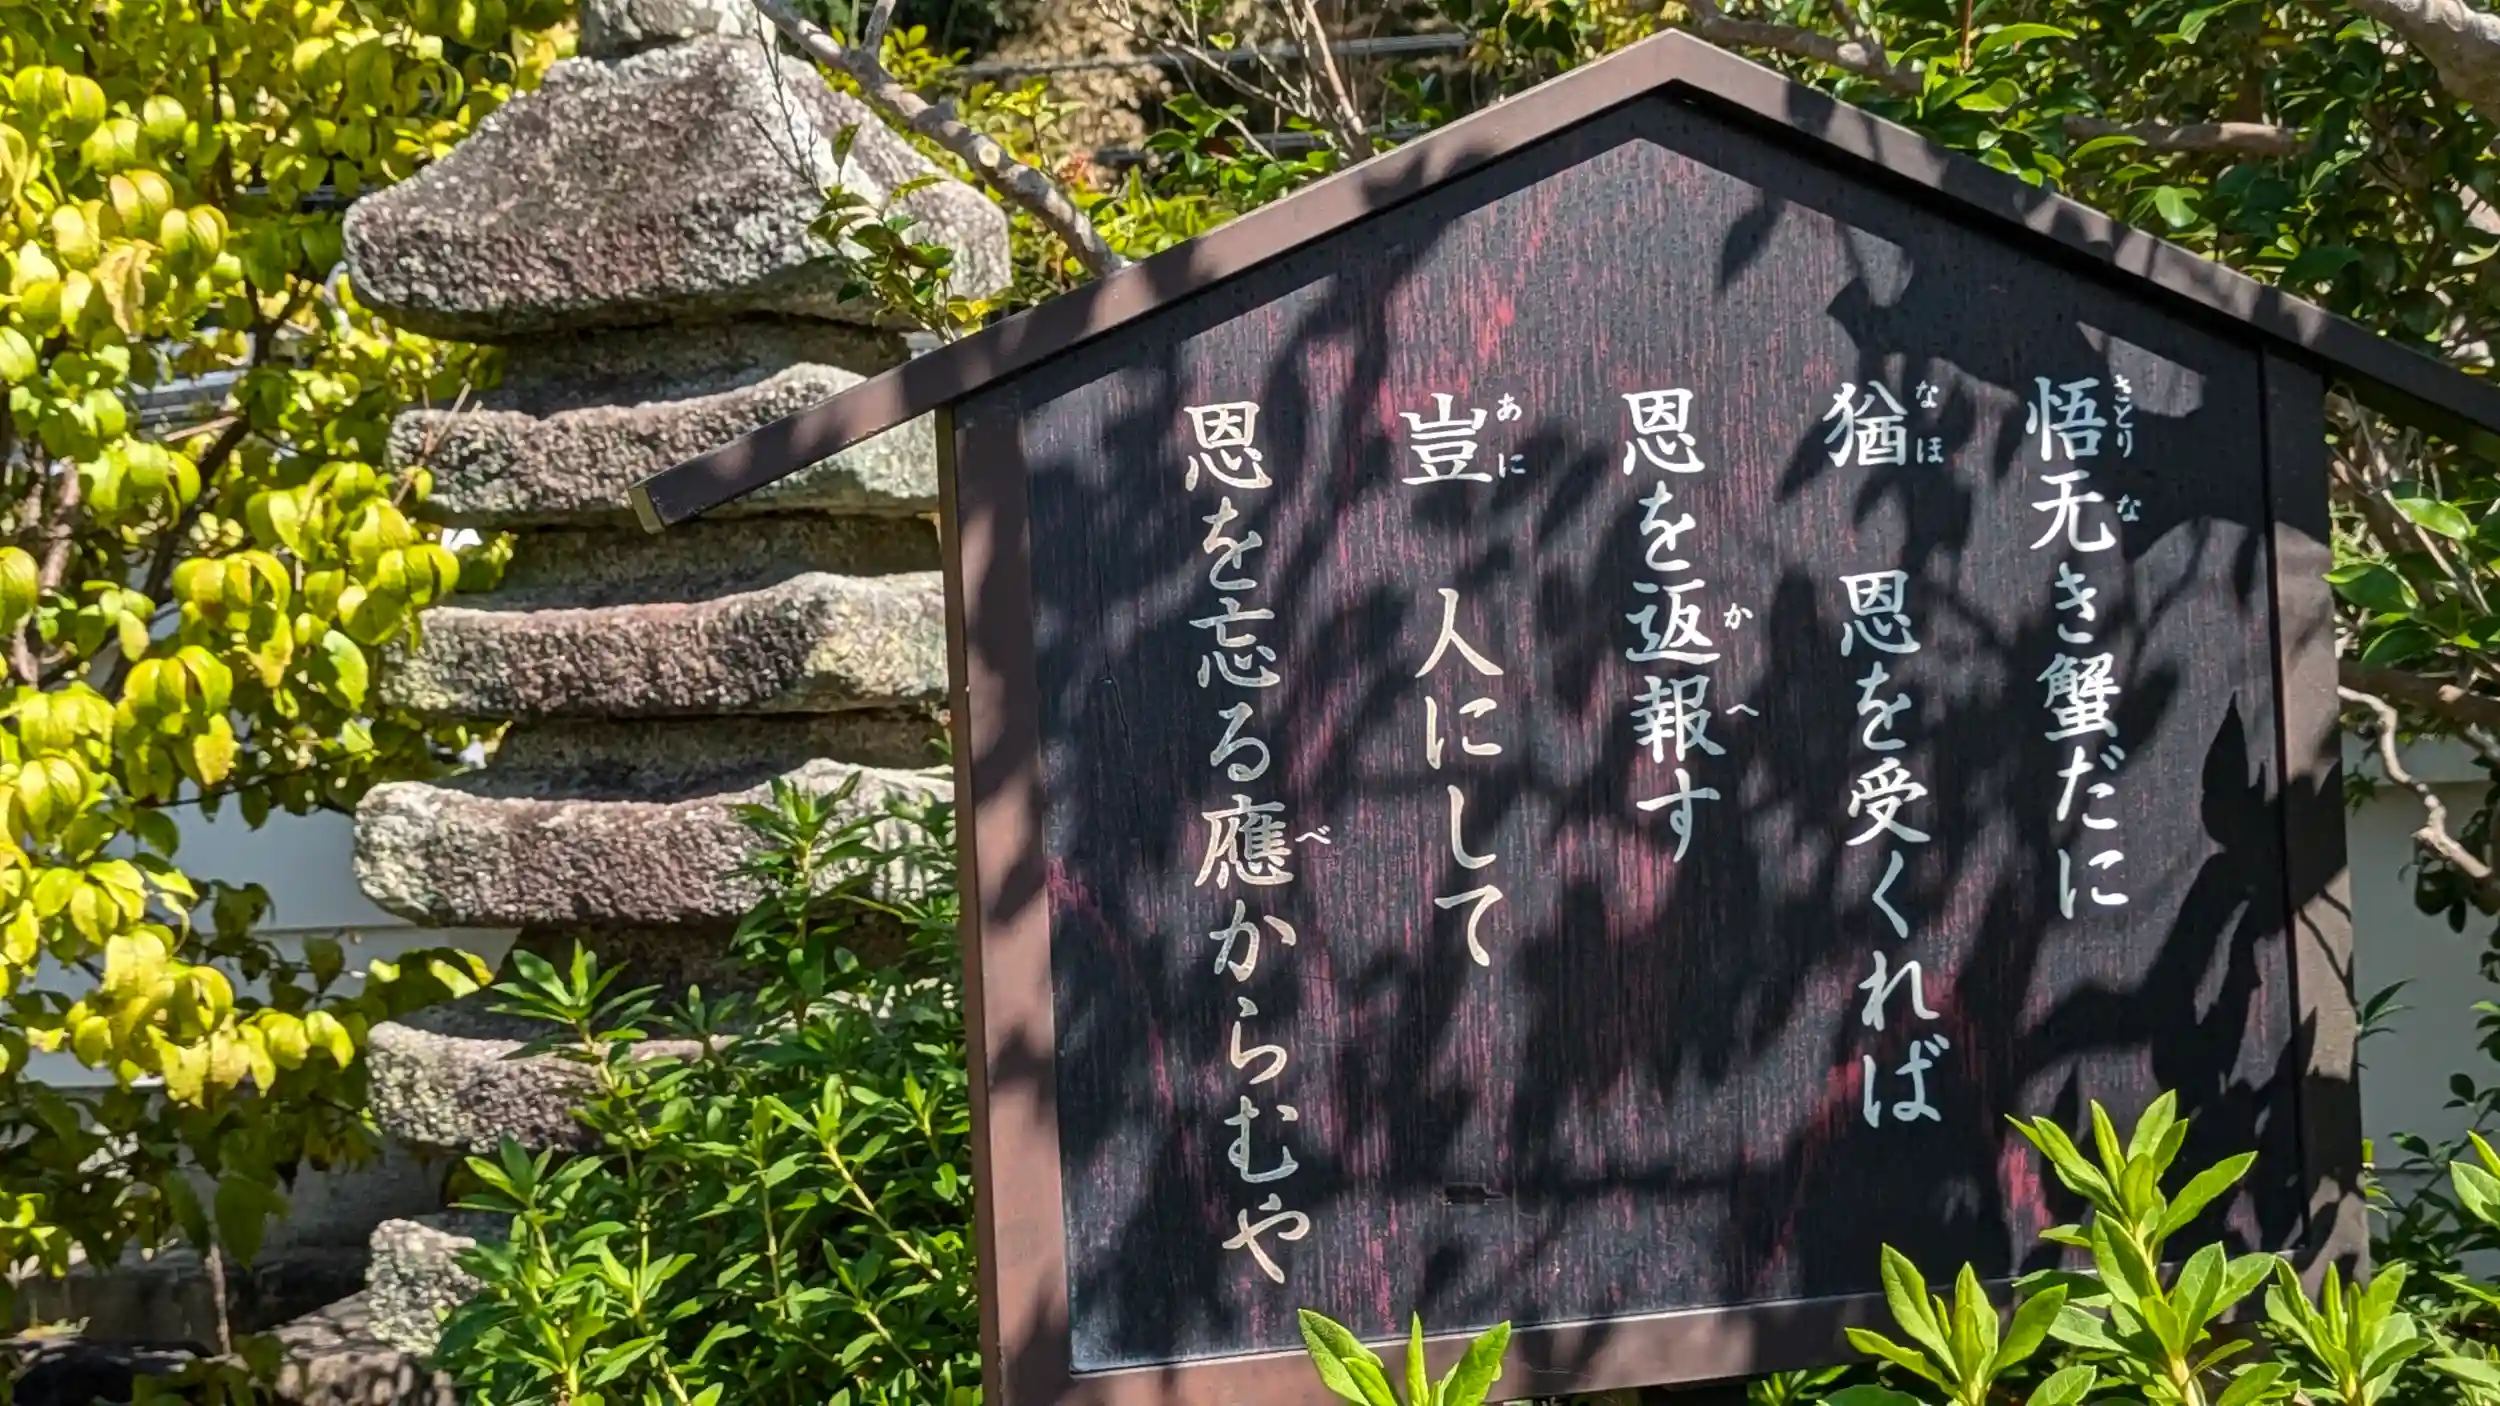 悟无き蟹だに
猶 恩を受くれば
恩を返報す
豈 人にして
恩を忘る應からむや
さとり
な
なほ
かへ
あに
べ